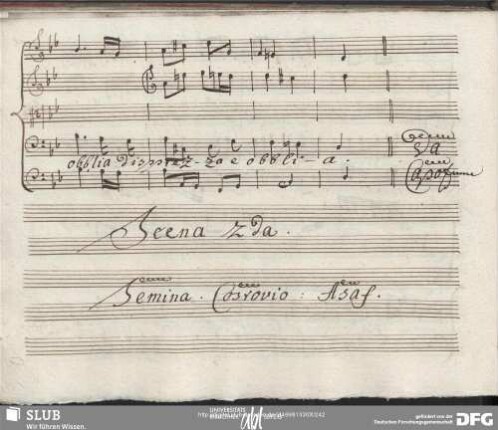 Da
obblia disprez-za e obbli-a.
Capo
Scena 2da.
Semina. Cosrovio: Asaf.
SLUB
Wir führen Wissen.
UNIVERSITÄTS
gefördert von der
Deutschen Forschungsgemeinschaft
DFG